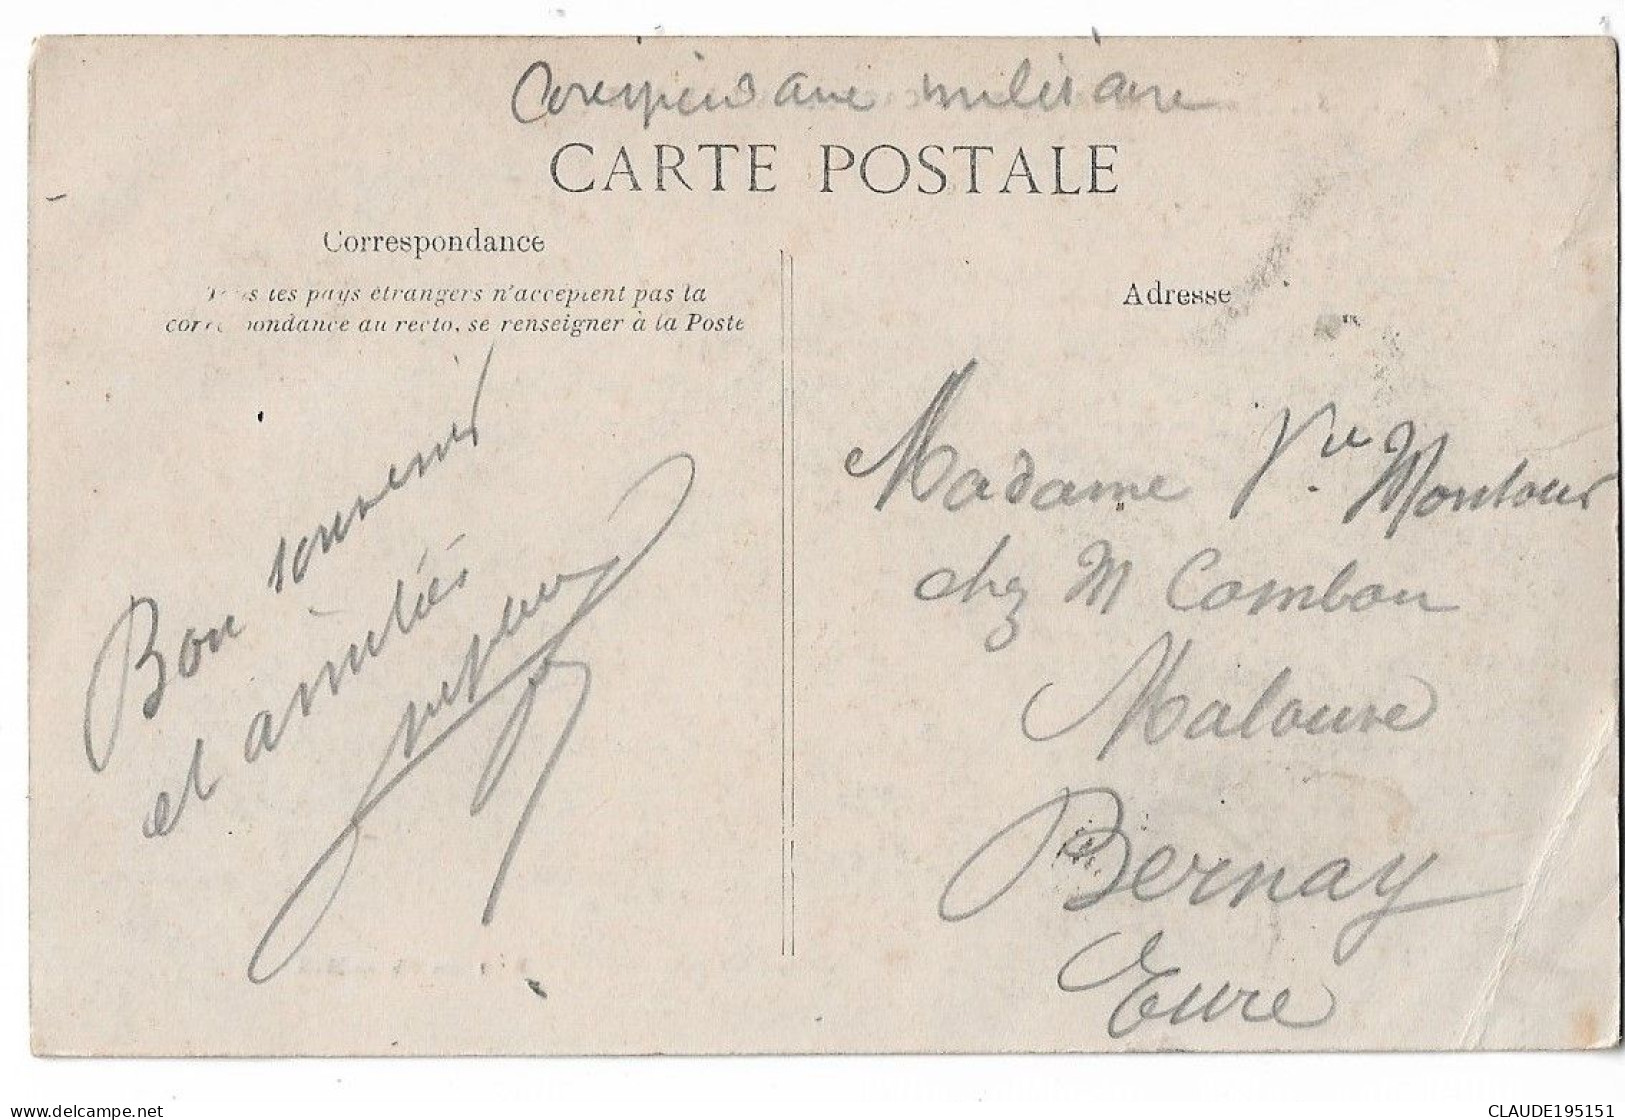 Correspondance militaire
CARTE POSTALE
Correspondance
Tous les pays étrangers n'acceptent pas la
correspondance au recto, se renseigner à la Poste
Bon souvenir
et amitiés
Adresse
Madame Vve Montour
chez M Combon
Malouve
Bernay
Eure
CLAUDE195151
delcampe.net